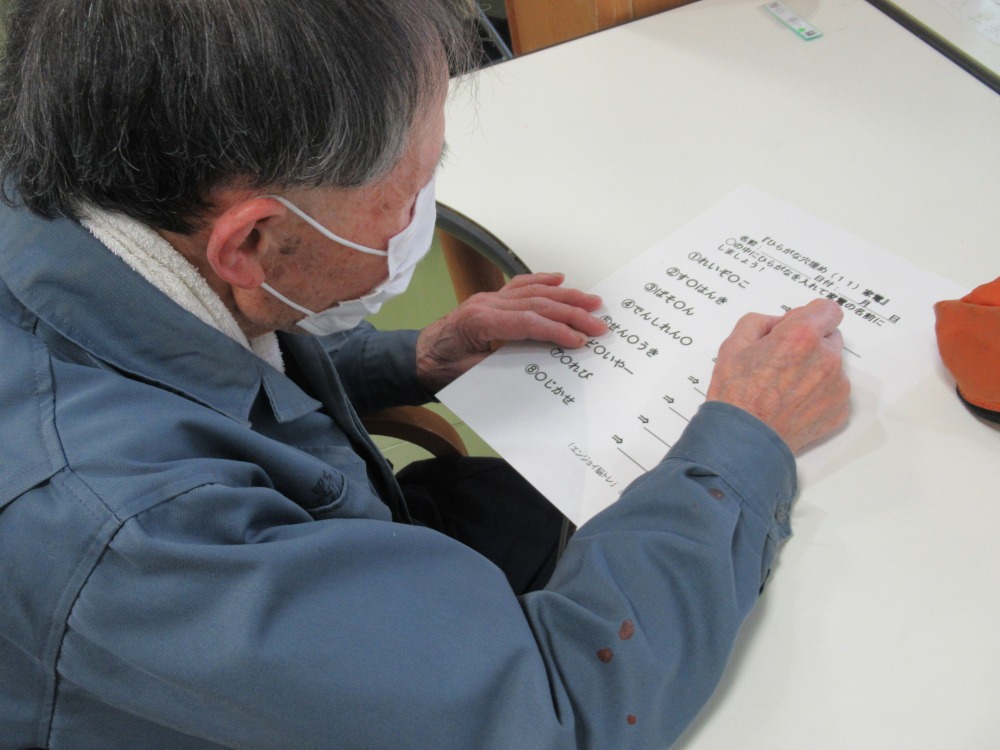 『ひらがな穴埋め（１１）家電』
名前： 日付： 月 日
〇の中にひらがなを入れて家電の名前に
しましょう！
①れいぞ〇こ ⇒
②す〇はんき
③ぱそ〇ん
④でんしれん〇
⑤せん〇うき ⇒
そ〇いやー ⇒
⑦〇れび ⇒
⑧〇じかせ ⇒
「エンジョイ脳トレ」